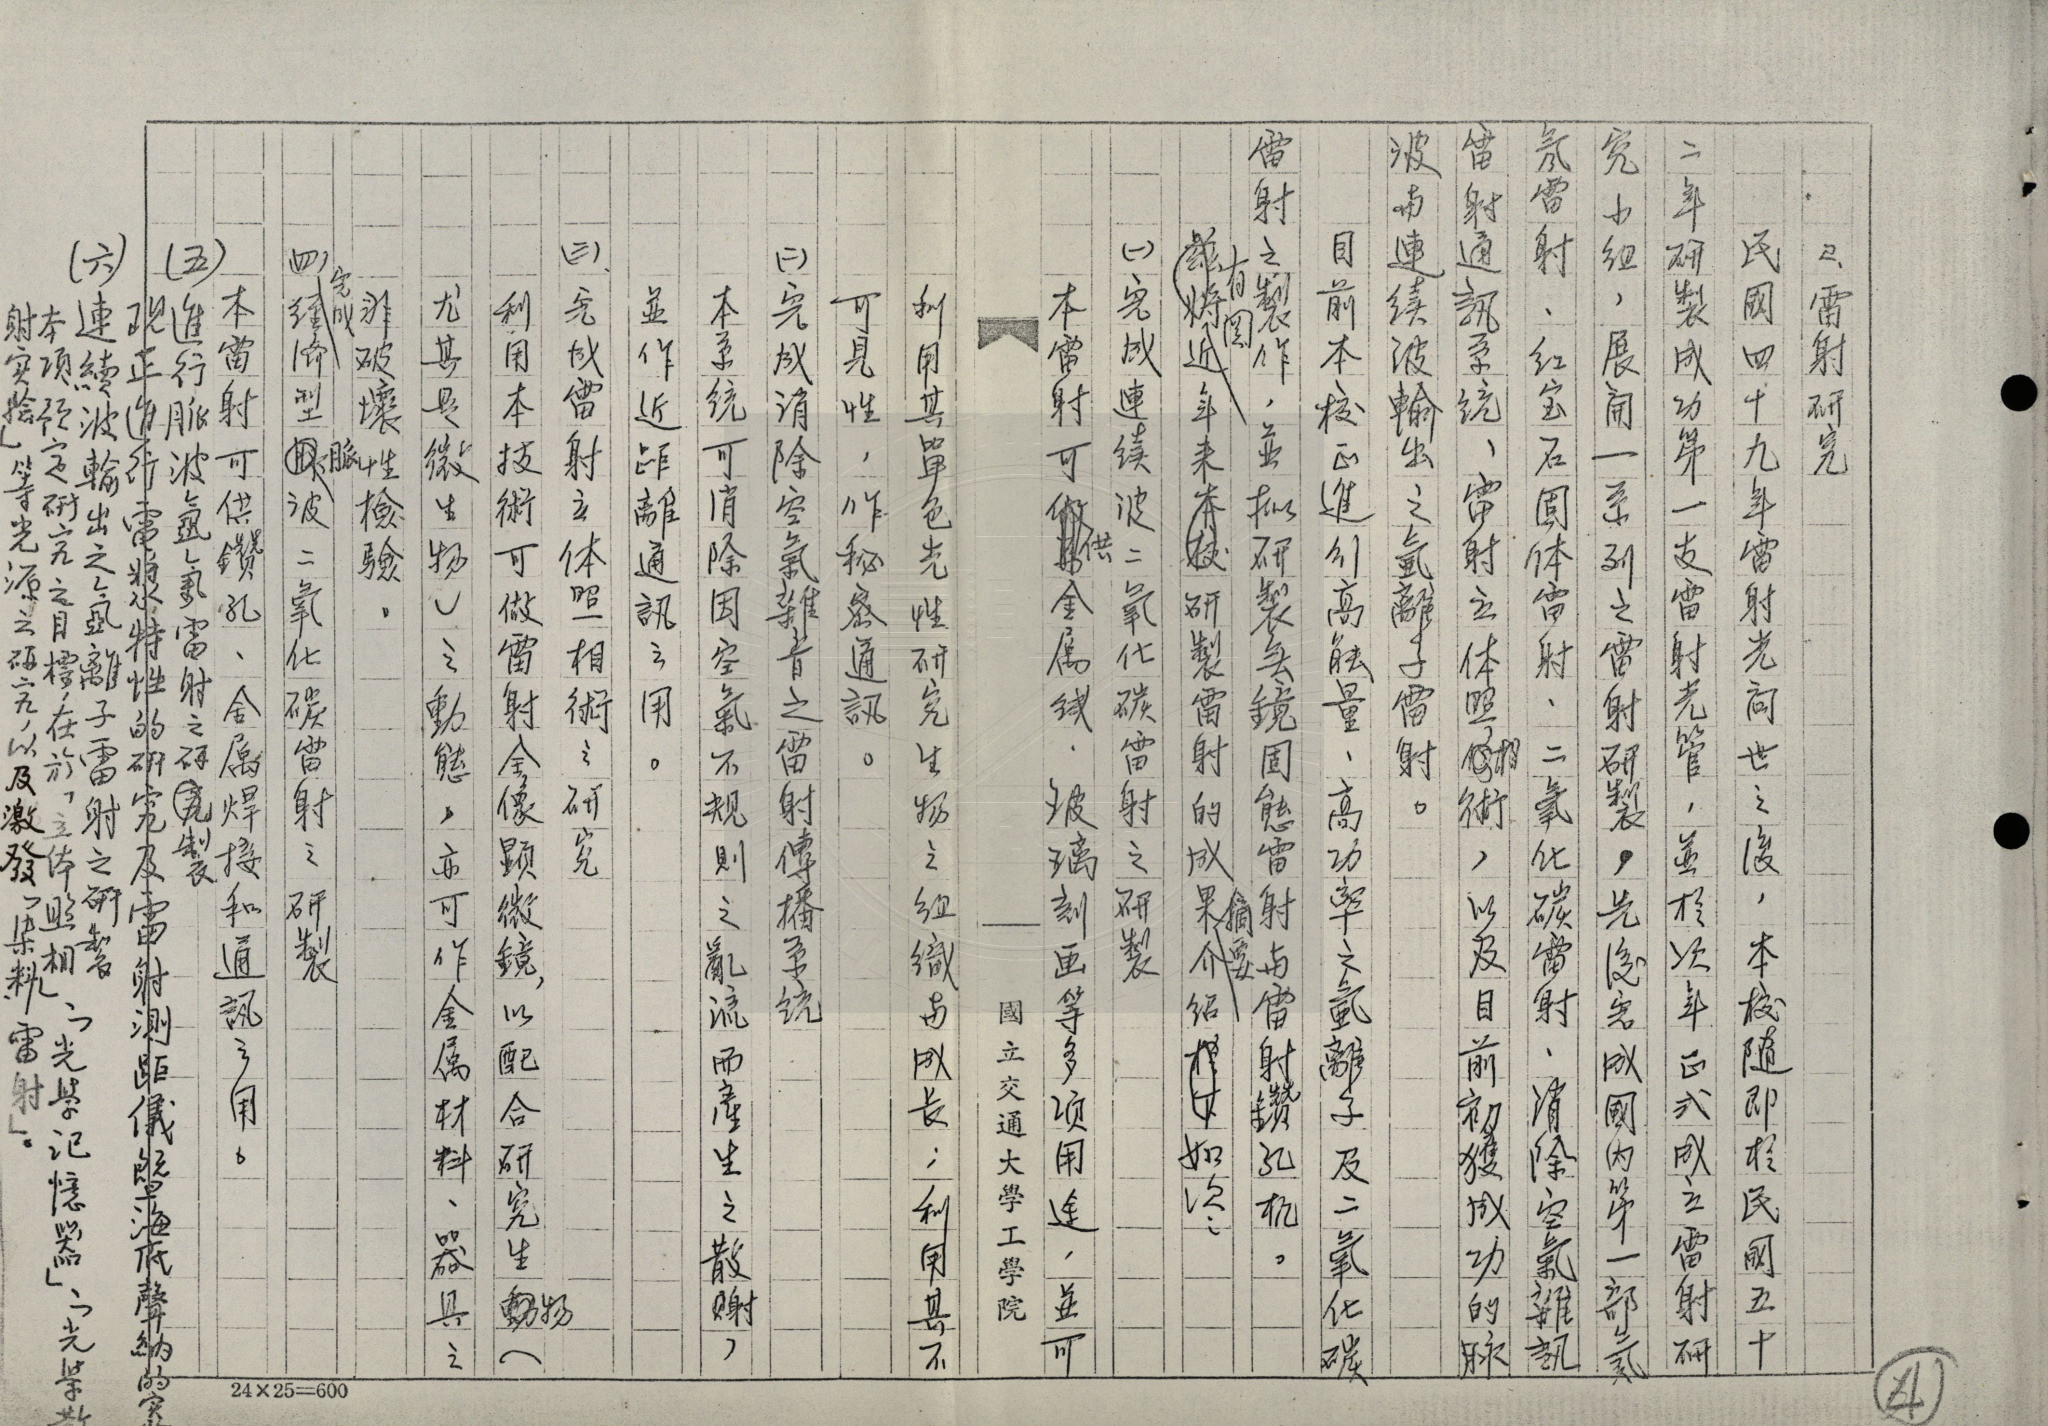 2、雷射研究
民國四十九年雷射光問世之後，本校隨即於民國五十
二年研製成功第一支雷射光管，並於次年正式成立雷射研
究小組，展開一系列之雷射研製，先後完成國內第一部氦
氖雷射、紅宝石固体雷射、二氧化碳雷射、消除空氣雜訊
雷射通訊系統、雷射立体照相術，以及目前初獲成功的脉
波与連續波輸出之氬離子雷射。
目前本校正進行高能量、高功率之氬離子及二氧化碳
雷射之製作，並擬研製無鏡固態雷射与雷射鑽孔机。
有関
年來研製雷射的成果摘要如次：
(一)完成連續波二氧化碳雷射之研製
本雷射可供金属线、玻璃刻画等多项用途，並可
國立交通大學工學院
利用其單色光性研究生物之组織与成長；利用其不
可見性，作秘密通訊。
(二)完成消除空氣雜音之雷射傳播系統
本系統可消除因空氣不规則之亂流而產生之散射，
並作近距離通訊之用。
(三)完成雷射立体照相術之研究
利用本技術可做雷射全像顕微鏡，以配合研究生物（
尤其是微生物）之動態，亦可作金属材料、器具之
非破壞性檢驗。
(四)完成濟型脈波二氧化碳雷射之研製
本雷射可供鑽孔、金属焊接和通訊之用。
(五)進行脈波氬氣雷射之研製
現正進行雷射水特性的研究及雷射測距儀暨海底聲納的实
(六)連續波輸出之氬離子雷射之研製
本項預定研究之目標，在於「立体照相」、「光學记憶器」、「光學散
射实验」等光源之研究，以及激發「染料雷射」。
24×25=600
4